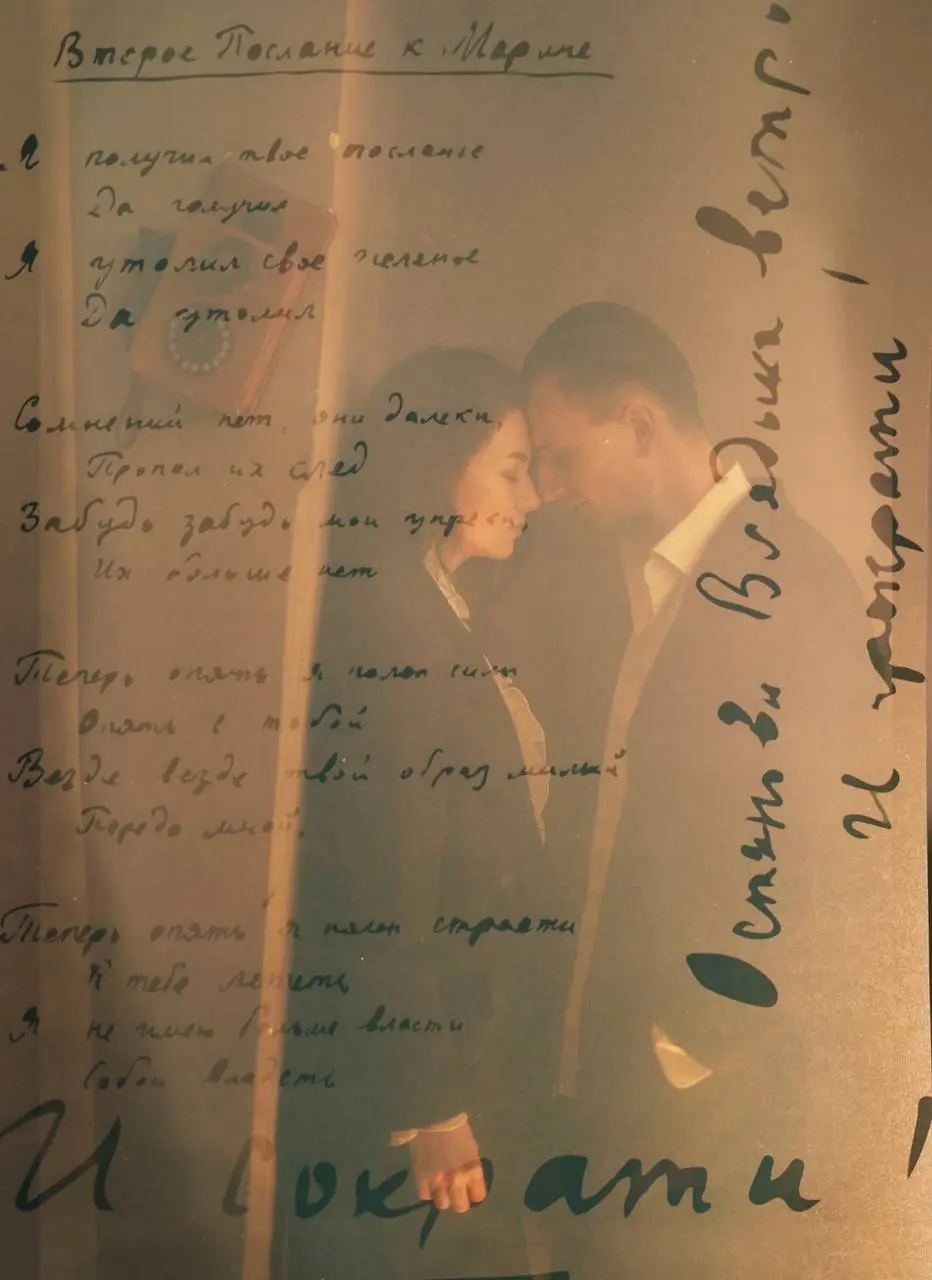 Второе Послание к Марине
Я получил твое посланье
Да получил
Я утолил свое
Да утолил
Сомнений нет, они далеки,
Пропал их след
Забудь забудь мои упреки,
Их больше нет
Теперь опять я полон силы
Опять с тобой
Везде везде твой образ милый
Передо мной.
Теперь опять я полон страсти
К тебе лететь
Я не имею больше власти
Собой владеть
И Сократи
Останови Владыка ветр
И